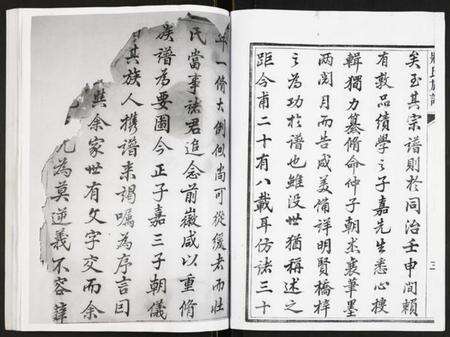 矣至其宗譜則於同治壬申間賴
有敦品績學之子嘉先生悉心搜
輯獨力纂脩命仲子朝求襄筆墨
两閱月而告成美備祥明賢橋梓
之為功於譜也雖没世猶稱述之
距今甫二十有八載耳仿諸三十
年一脩大例似尚可從緩者而姓
氏當事諸君追念前徽咸以重脩
族譜為要圖今正子嘉三子朝儀
其族人携譜来謁嘱為序言因
與余家世有文字交而余
尤為莫逆義不容辭